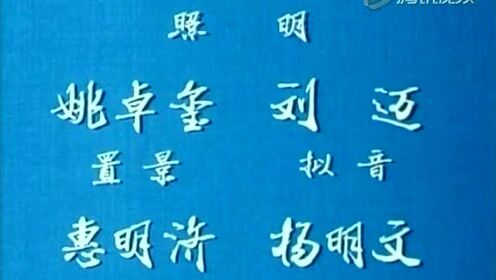 照 明
姚卓玺 刘 迈
置景 拟音
惠明济 杨明文